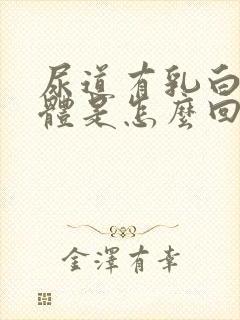 尿道有乳白
體是怎麼回
金澤有幸